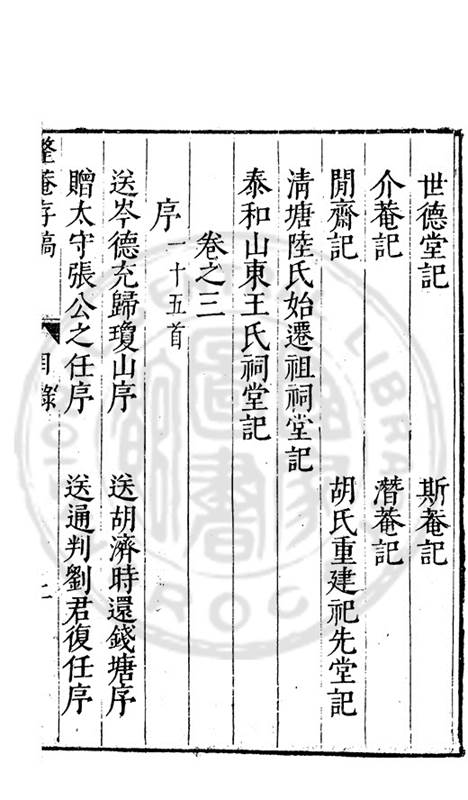 世德堂記 斯菴記
介菴記 潛菴記
閒齋記 胡氏重建祀先堂記
清塘陸氏始遷祖祠堂記
泰和山東王氏祠堂記
卷之三
序一十五首
送岑德充歸瓊山序 送胡濟時還錢塘序
贈太守張公之任序 送通判劉君復任序
整菴存稿 目錄